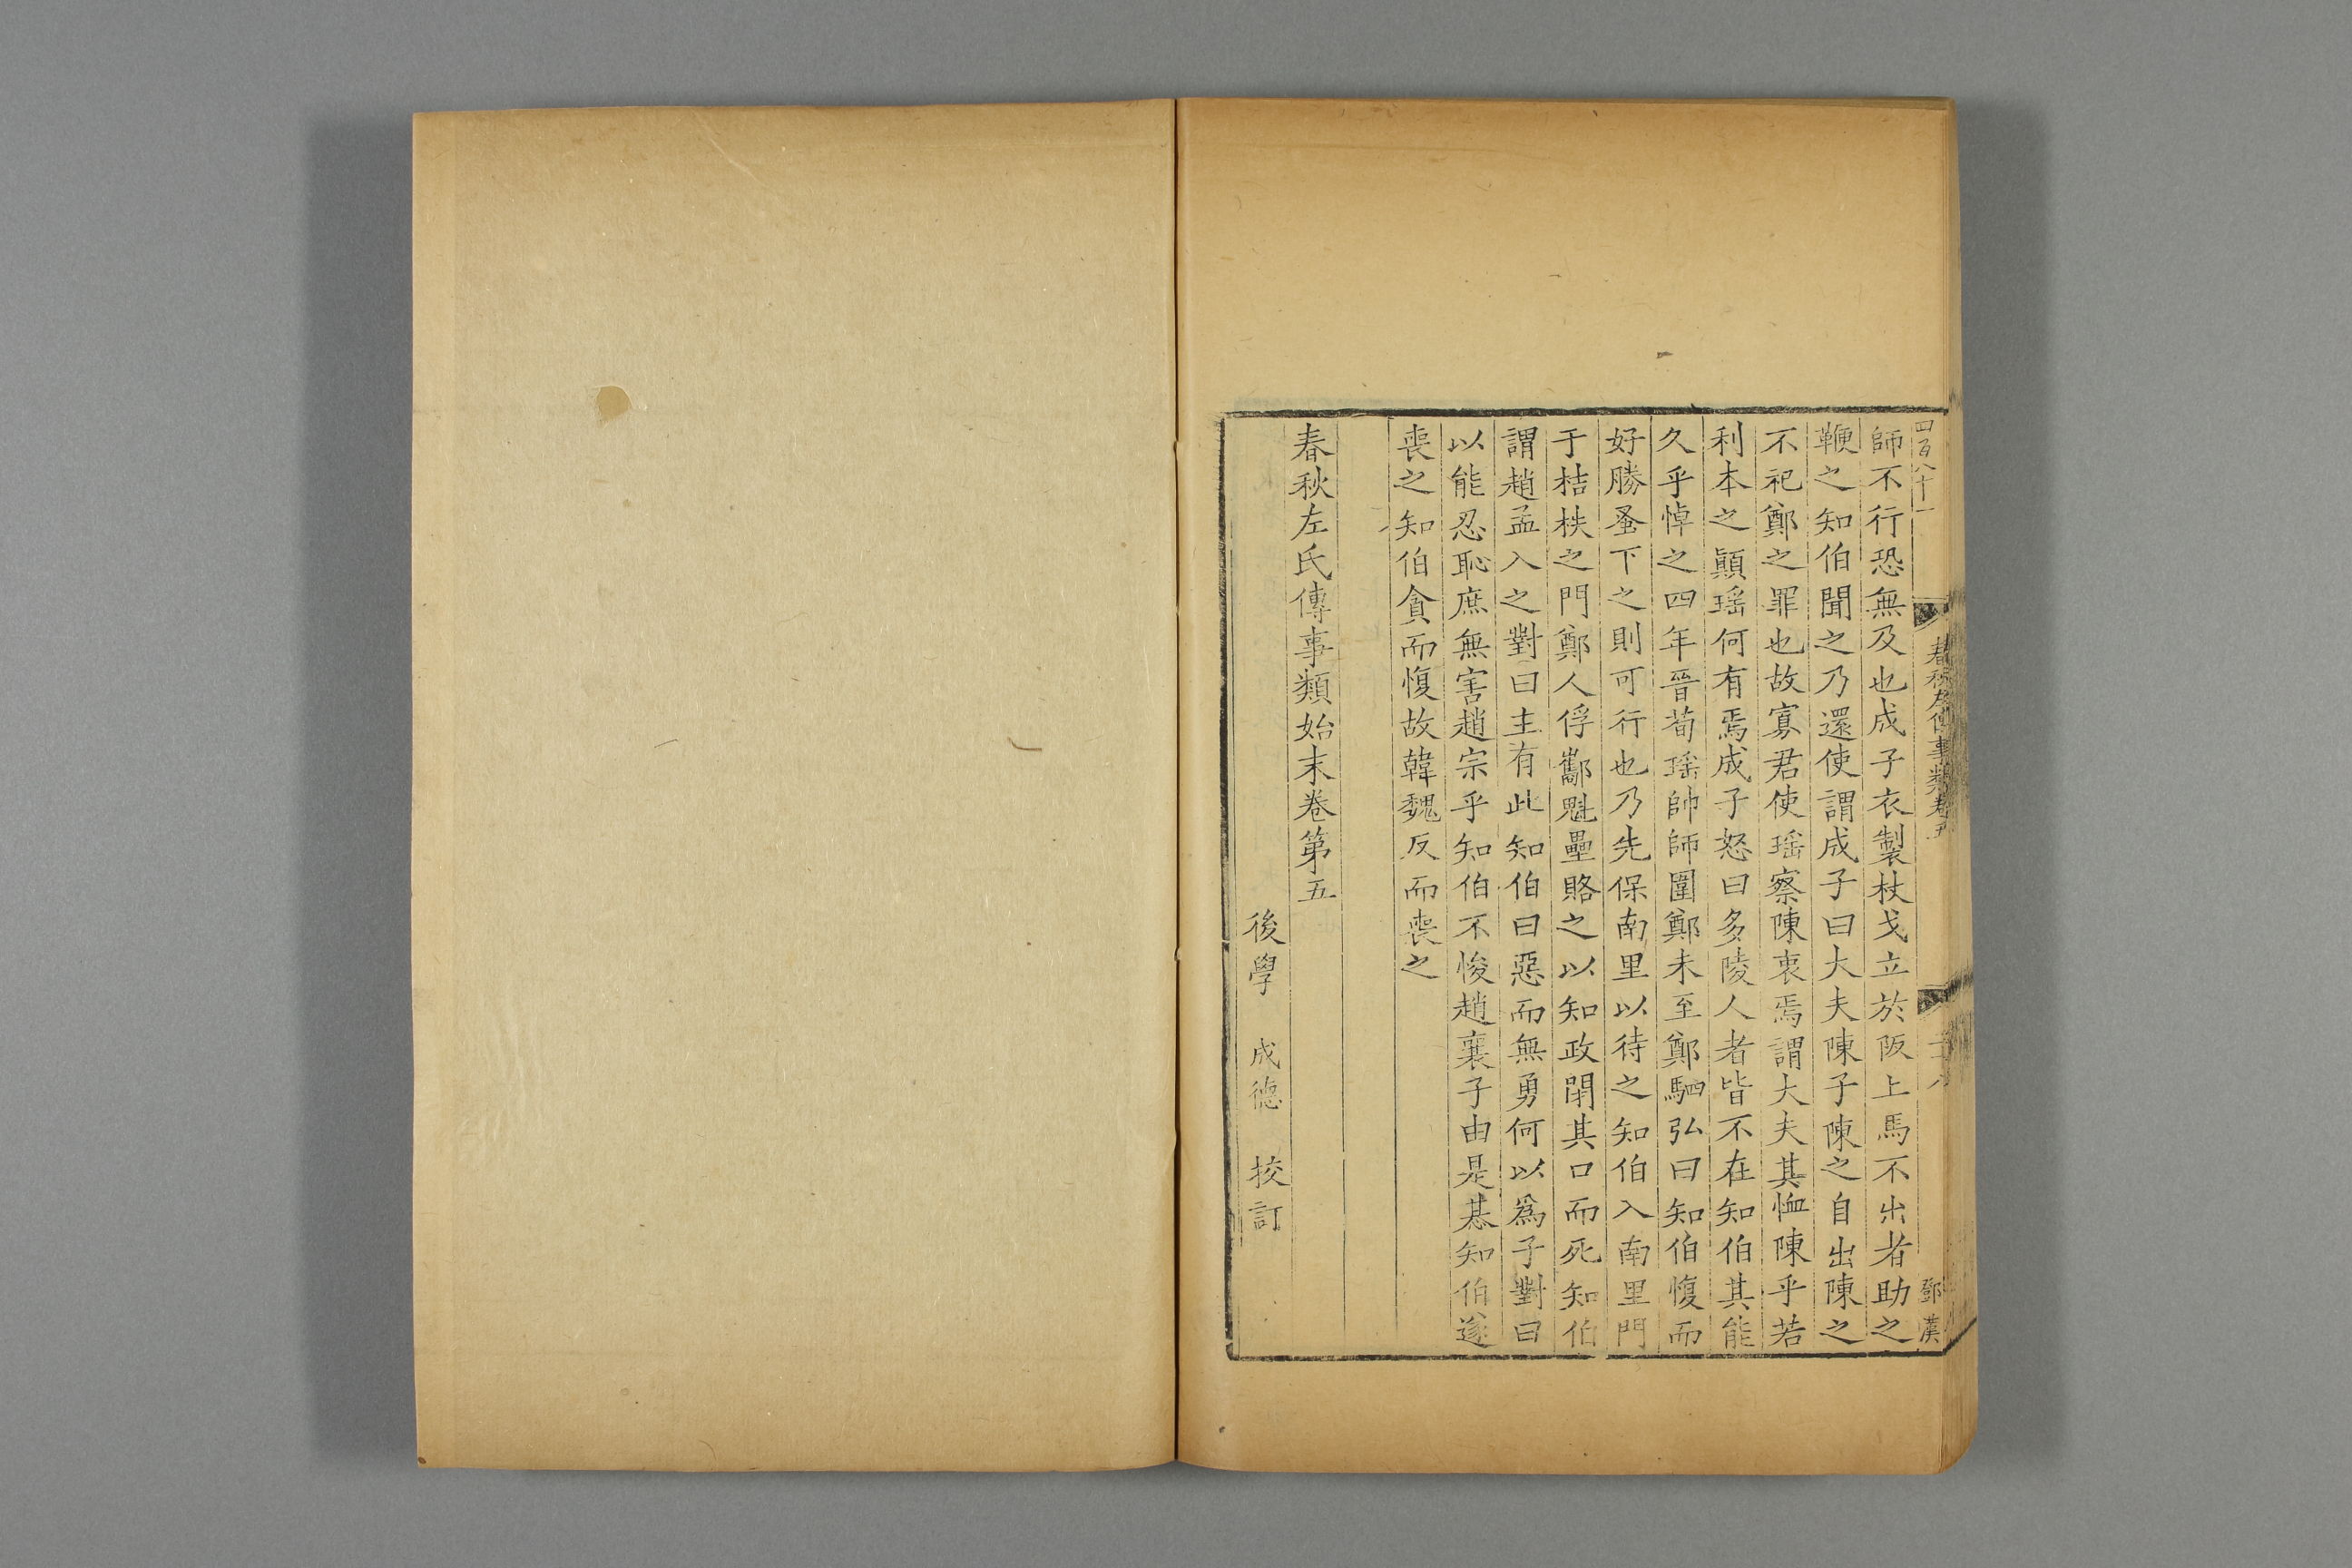 四百八十一
春秋左傳事類卷五
鄧漢
師不行恐無及也成子衣製杖戈立於阪上馬不出者助之
鞭之知伯聞之乃還使謂成子曰大夫陳子陳之自出陳之
不祀鄭之罪也故寡君使瑶察陳衷焉謂大夫其恤陳乎若
利本之顛瑶何有焉成子怒曰多陵人者皆不在知伯其能
久乎悼之四年晉荀瑶帥師圍鄭未至鄭駟弘曰知伯愎而
好勝蚤下之則可行也乃先保南里以待之知伯入南里門
于桔柣之門鄭人俘酅魁壘賂之以知政閉其口而死知伯
謂趙孟入之對曰主有此知伯曰惡而無勇何以爲子對曰
以能忍恥庶無害趙宗乎知伯不悛趙襄子由是惎知伯遂
喪之知伯貪而愎故韓魏反而喪之
春秋左氏傳事類始末卷第五
後學 成德 挍訂